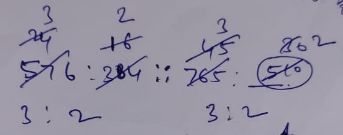 3 2 3
24 16 45 30 2
576 : 384 :: 765 : 510
3 : 2 3 : 2